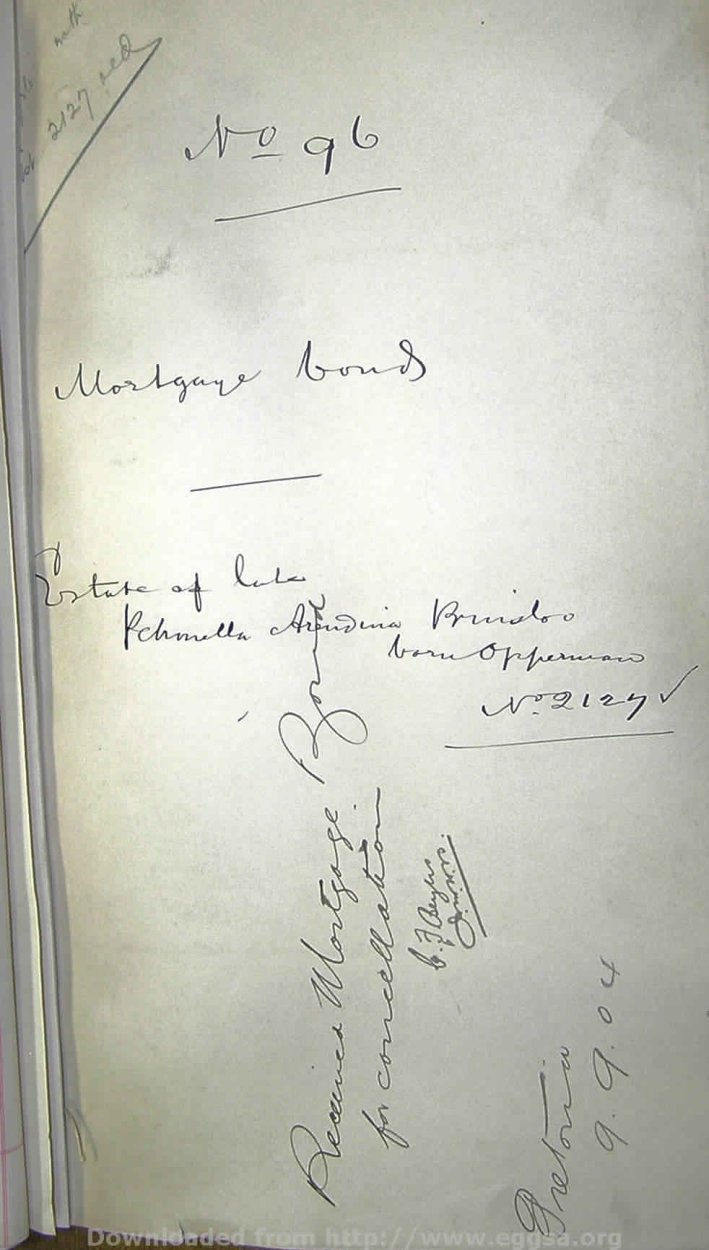 2127 red
No 96
Mortgage bond
Estate of late
Petronella Arendina Prinsloo
born Opperman
No. 2127 ✓
Received Mortgage Bond
for cancellation
C. F. Beyers
Pretoria
9.9.04
Downloaded from http://www.eggsa.org